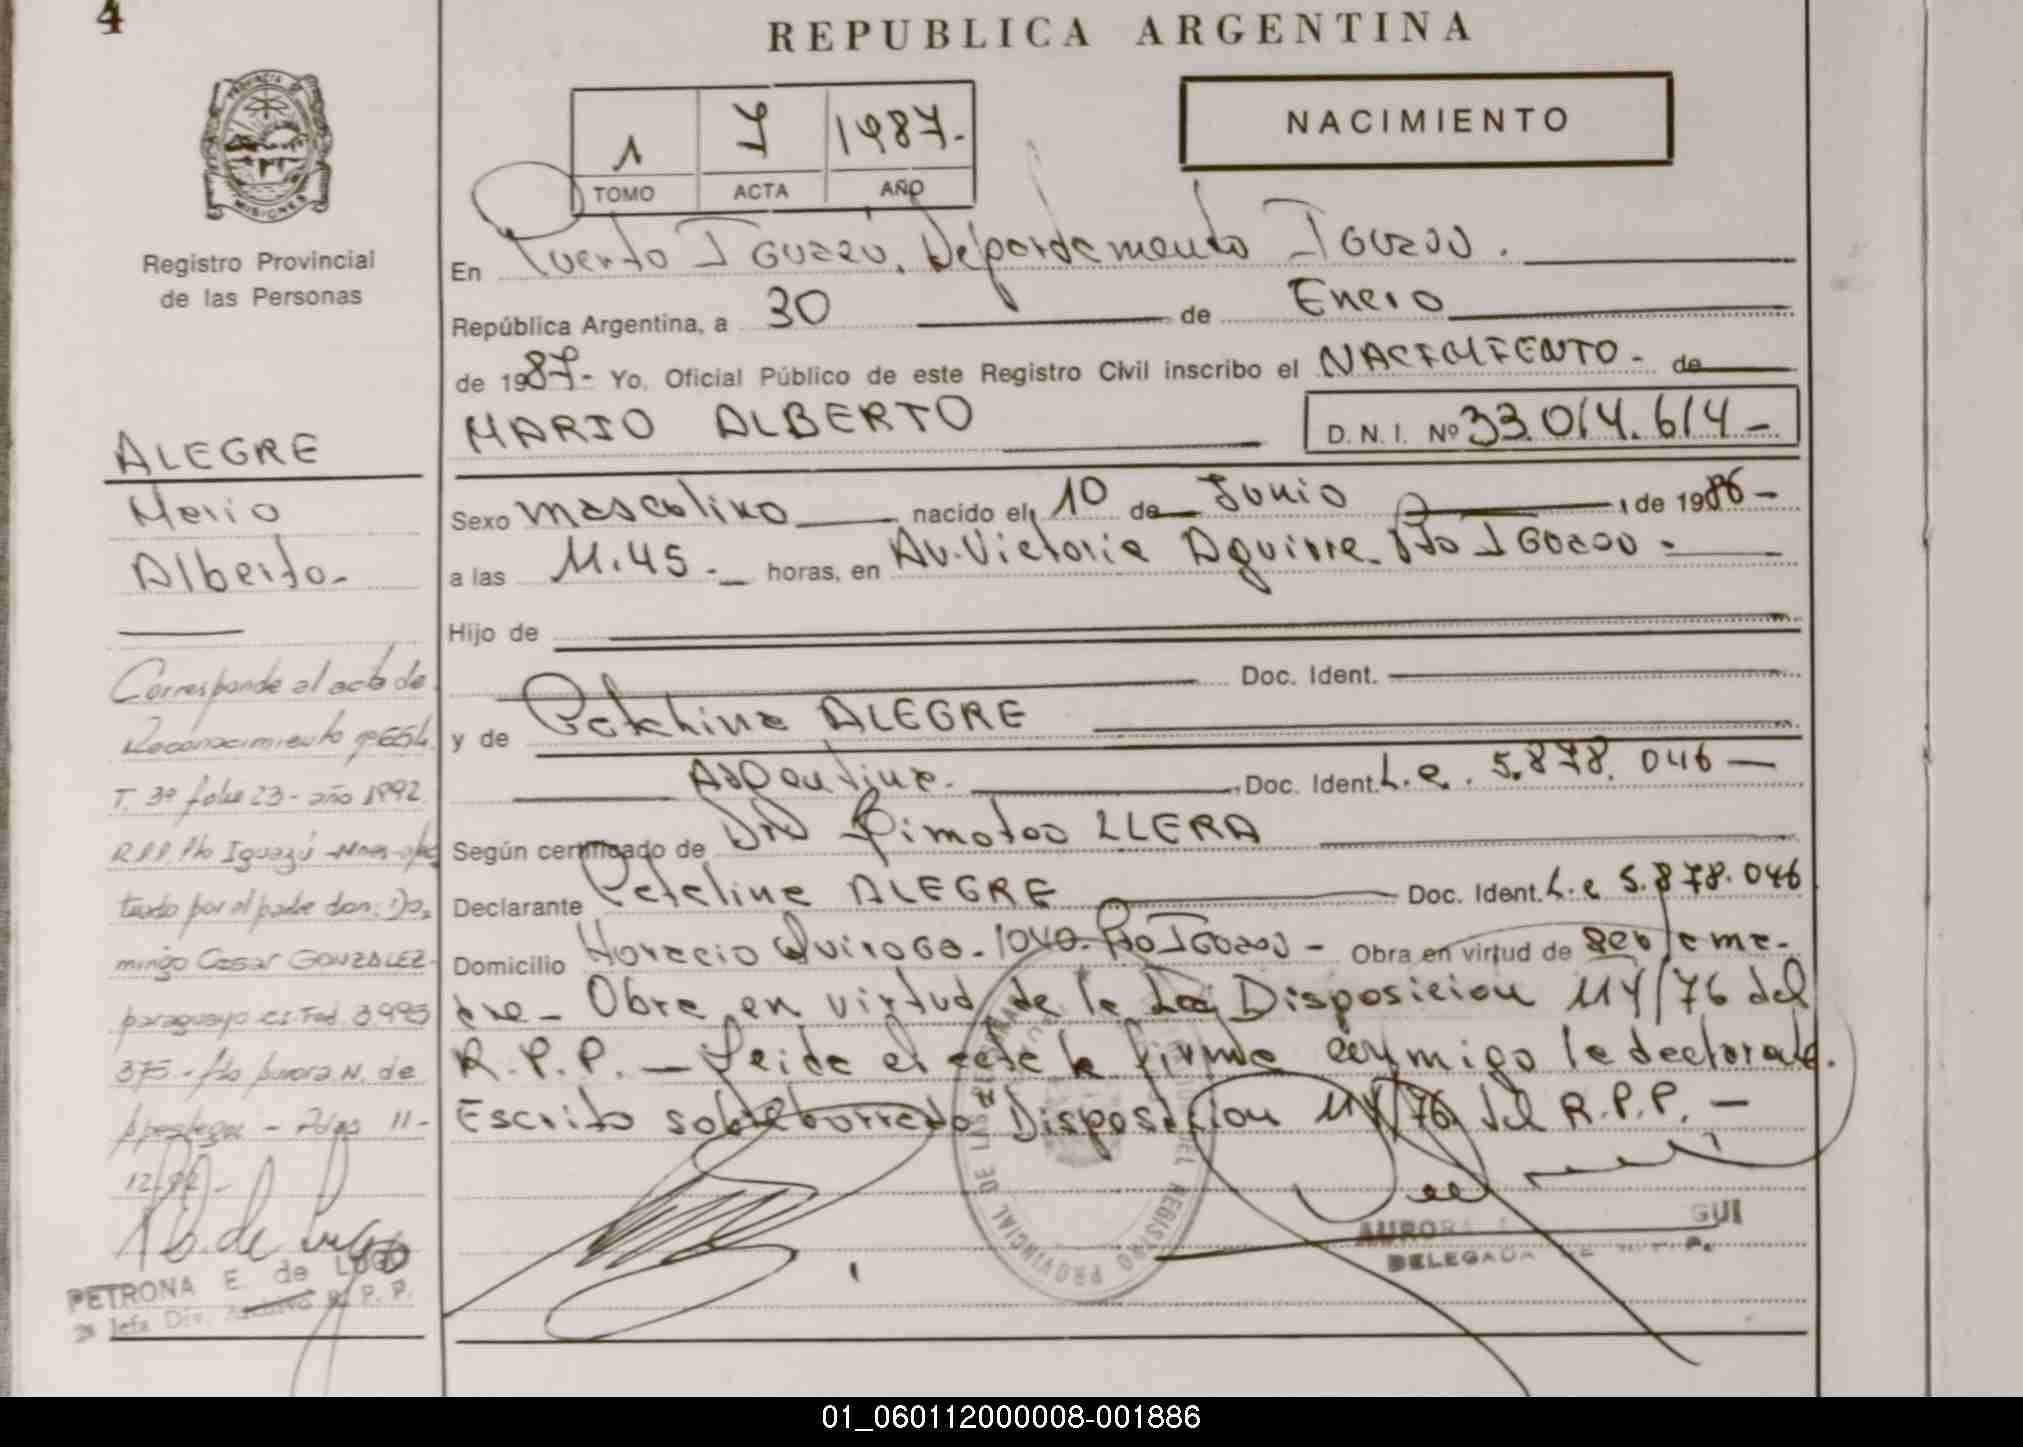 4
REPUBLICA ARGENTINA
PROVINCIA DE
MISIONES
Registro Provincial
de las Personas
1 7 1987.-
TOMO ACTA AÑO
NACIMIENTO
En Puerto IGUAZU, Departamento IGUAZU.
República Argentina, a 30 de Enero
de 1987.- Yo, Oficial Público de este Registro Civil inscribo el NACIMIENTO.- de
MARIO ALBERTO
D. N. I. Nº 33.014.614-
Sexo masculino nacido el 10 de Junio de 1986-
a las 11.45.- horas, en Av. Victoria Aguirre. Pto IGUAZU.-
Hijo de
Doc. Ident.
y de ALEGRE
Argentina. Doc. Ident. L.c. 5.878.046-
Según certificado de LLERA
Declarante Catalina ALEGRE Doc. Ident. L.c 5.878.046
Domicilio Horacio Quiroga. 1040. Pto IGUAZU - Obra en virtud de
dre_ Obra en virtud de la Disposicion 114/76 del
R.P.P. - Leida el acta la firma conmigo la declarante.
Escrito sobreborrado Disposicion 114/76 del R.P.P. -
ALEGRE
Mario
Alberto-
Corresponde al acta de
Reconocimiento nº 654
T. 3º folio 23 - año 1992.
R.P.P. Pto Iguazú
por el padre don: Do
mingo Cesar GONZALEZ-
paraguayo 3.995
375 -
11-
12-92-
PETRONA E. de LUGO
2ª Jefa Div. Archivo R. P. P.
DEL REGISTRO PROVINCIAL DE LAS
AURORA GUI
DELEGADA
01_060112000008-001886